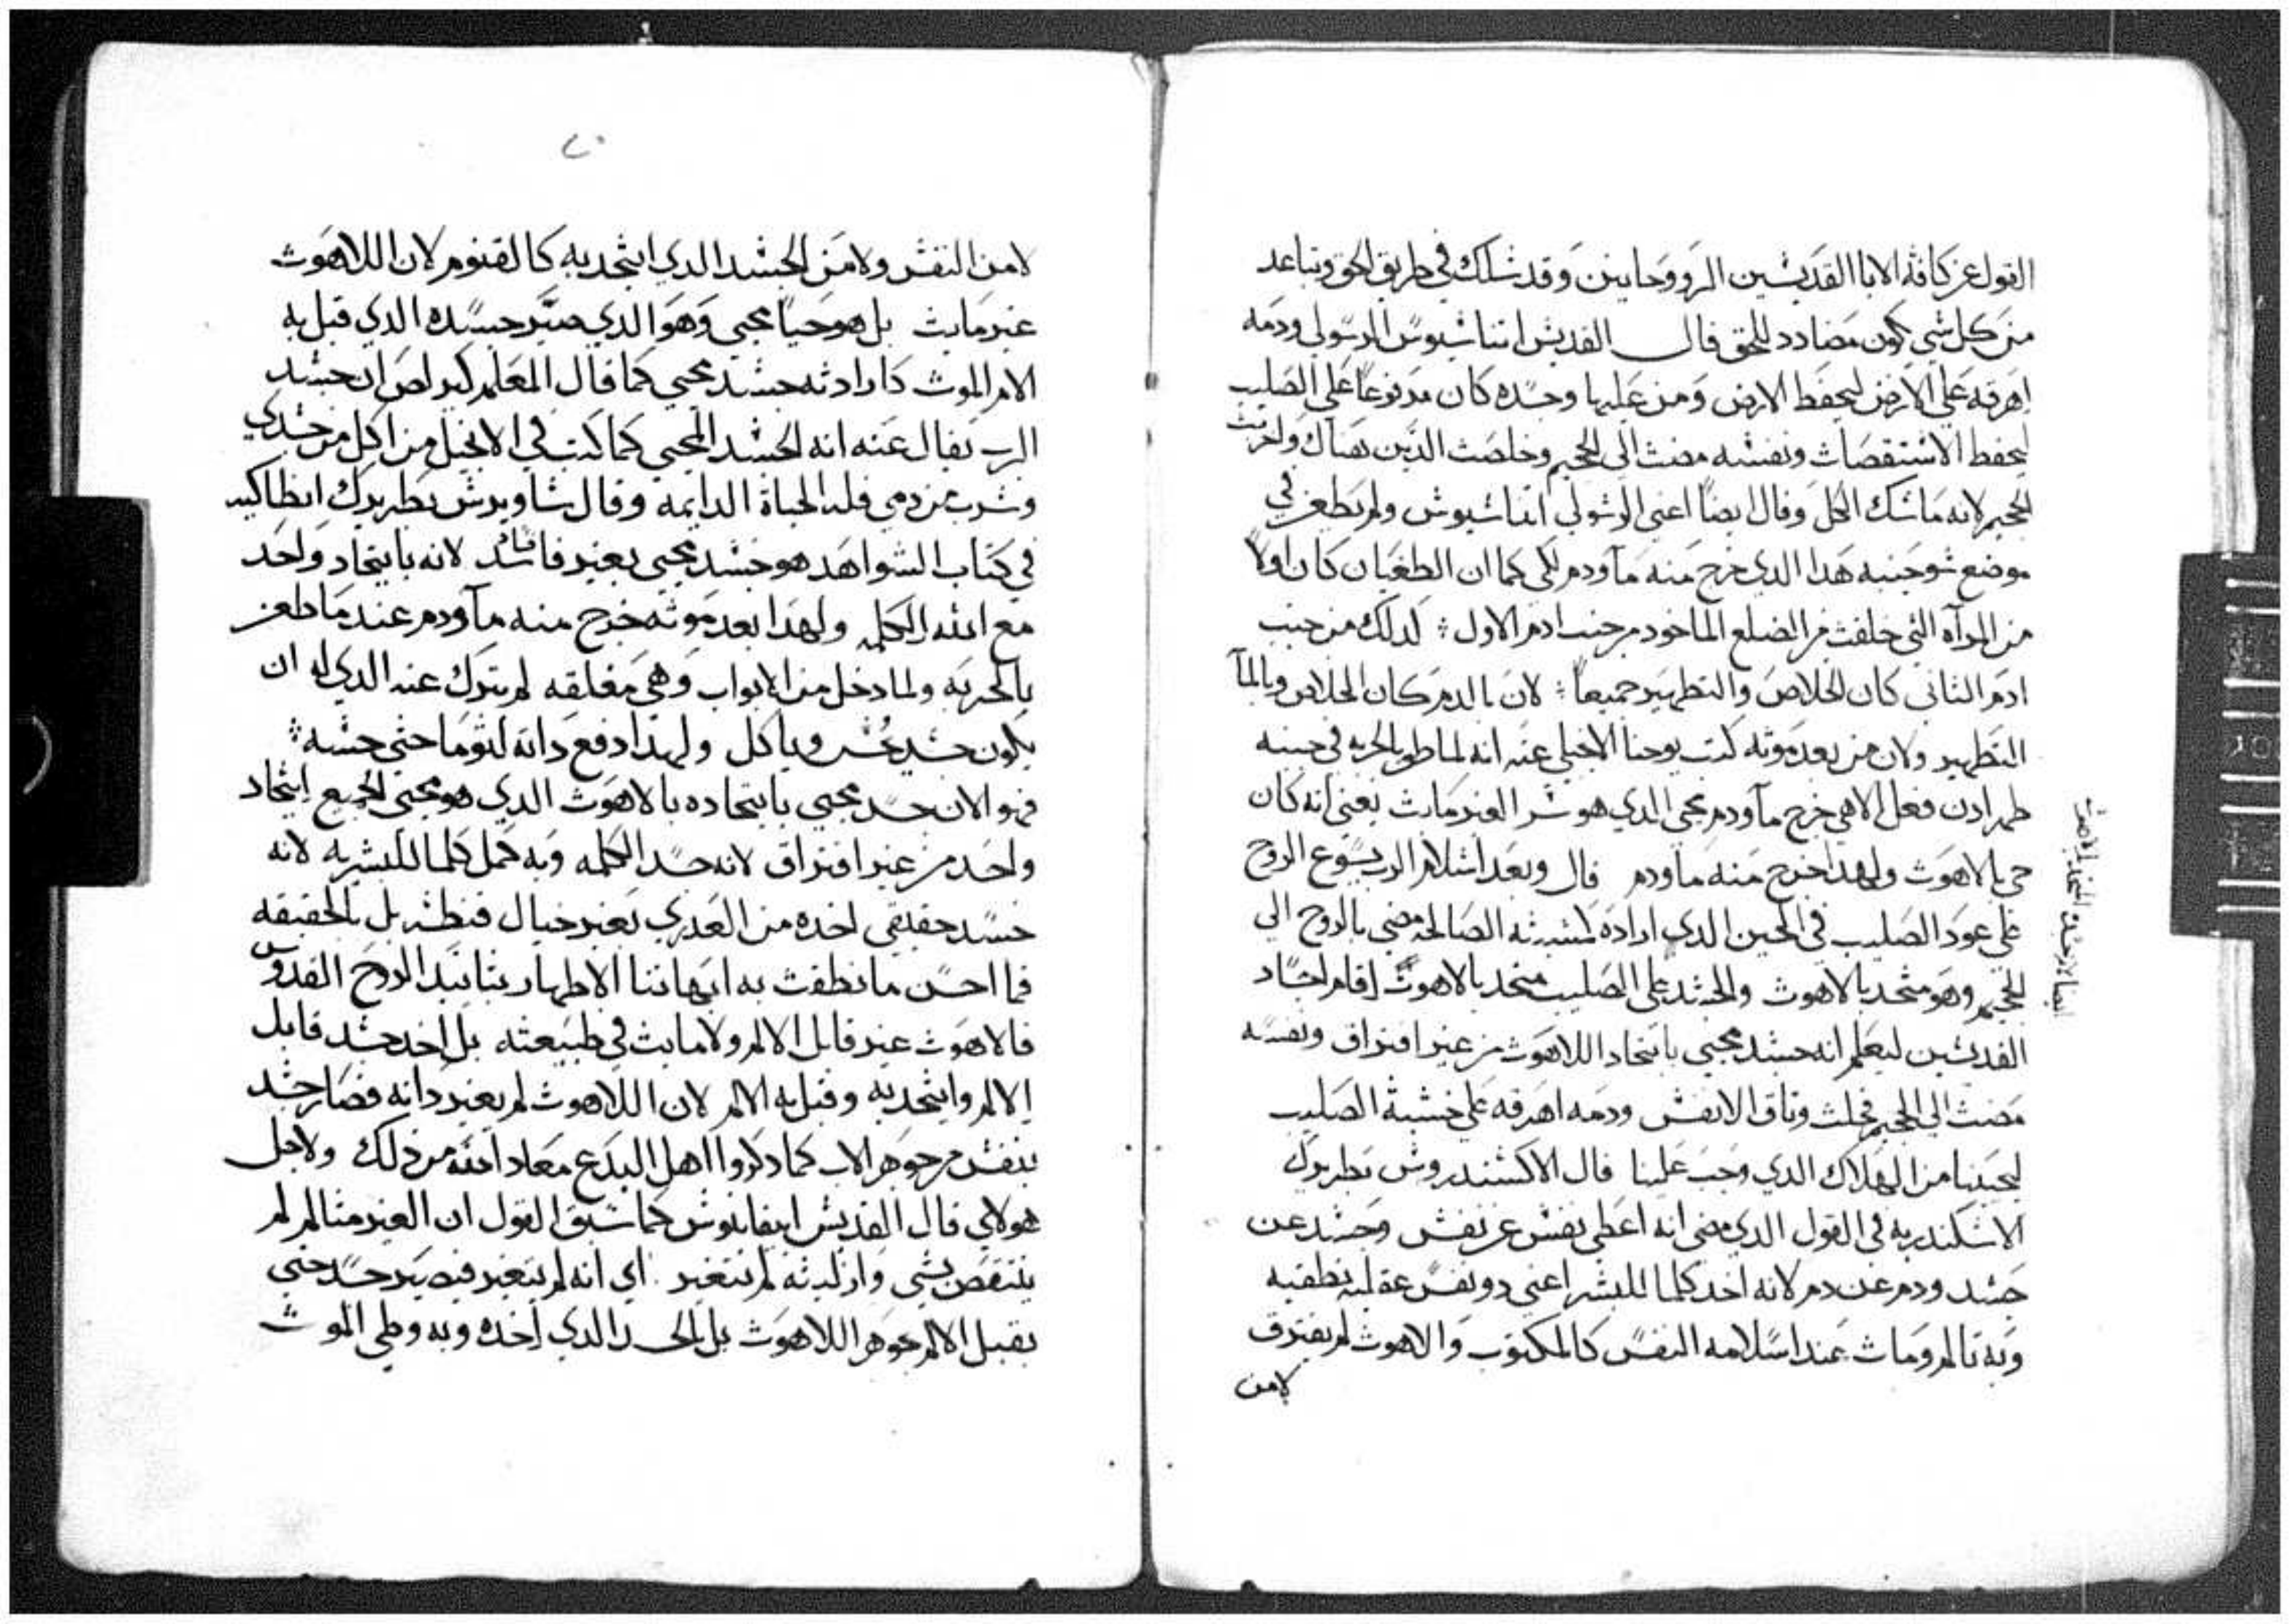 القول عن كافه الابا القديشين الروحانيين وقد شلك في طريق الحق وتباعد
من كل شي يكون مضادد للحق قال القديش اتناشيوس الرسولي ودمه
اهرقه علي الارض ليحفظ الارض ومن عليها وجسده كان مدفوعاً علي الصليب
ليحفظ الاشتقصات ونفشه مضت الي الجحيم وخلصت الدين هناك
الجحيم لانه ماشك الكل وقال ايضاً اعني الرشولي اتناشيوش ولم يطعن في
موضع شو جنبه هدا الدي خرج منه مآ ودم لكي كما ان الطغيان كان اولاً
من المرآه التي خلقت من الضلع الماخود من جنب ادم الاول ؛ لدلك من جنب
ادم التاني كان الخلاص والتطهير جميعاً ؛ لان بالدم كان الخلاص وبالمآ
التطهير ولان من بعد موته كتب يوحنا الانجيلي عنه انه لما طعن بالحربه في جنبه
ظهر ادن فعل الاهي خرج مآ ودم محيي الدي هو شر الغير مايت يعني انه كان
حي بالاهوت ولهدا خرج منه ما ودم قال وبعد اشلام الرب يسوع الروح
علي عود الصليب في الحين الدي اراده لمشيته الصالحه مضي بالروح الي
الجحيم وهو متحد بالاهوت والجشد علي الصليب متحد بالاهوت اقام اجساد
القديشين ليعلم انه جشد محيي باتحاد اللاهوت من غير افتراق ونفسه
مضت الي الجحيم فحلت وتاق الانفش ودمه اهرقه علي خشبة الصليب
لينجينا من الهلاك الدي وجب علينا قال الاكشندروش بطريرك
الاشكندريه في القول الدي مضي انه اعطي نفش عن نفش وجشد عن
جشد ودم عن دم لانه اخد كلما للبشر اعني دو نفس عقليه نطقيه
وبه تالم ومات عند اسلامه النفس كالمكتوب والاهوت لم يفترق
لامن
لامن النفش ولا من الجشد الدي اتحد به كالقنوم لان اللاهوت
غير مايت بل هو حياً محيي وهو الدي صير جسده الدي قبل به
الام الموت دارادته جشد محيي كما قال المعلم كيرلص ان جشد
الرب يقال عنه انه الجشد المحيي كما كتب في الانجيل من اكل من جشدي
وشرب من دمي فله الحياة الدايمه وقال شاويرش بطريرك انطاكيه
في كتاب الشواهد هو جشد محيي بغير فاشد لانه باتحاد واحد
مع الله الكلمه ولهدا بعد موته خرج منه مآ ودم عند ما طعن
بالحربه ولما دخل من الابواب وهي مغلقه لم يترك عنه الدي له ان
يكون جشد يُحش وياكل ولهدا دفع داته لتوما حتي جشه ؛
فهو الان جسد محيي باتحاده بالاهوت الدي هو محيي الجميع اتحاد
واحد من غير افتراق لانه جسد الكلمه وبه كمل كلما للبشريه لانه
جسد حقيقي اخده من العدري بغير خيال فنطش بل بالحقيقه
فما احسن ما نطقت به ابهاتنا الاطهار بتاتيد الروح القدوس
فالاهوت غير قابل الالم ولا مايت في طبيعته بل اخد جشد قابل
الالم واتحد به وقبل به الالم لان اللاهوت لم يغير داته فصار جشد
بنفش من جوهر الاب كما دكروا اهل البدع معاد الله من ذلك ولاجل
هولاي قال القديش ابيفانوش كما شبق القول ان الغير متالم لم
ينتقص بشي وازليته لم تتغير اي انه لم يتغير فيصير جسد حتي
يقبل الالم جوهر اللاهوت بل الجسد الدي اخده وبه وطي الموت